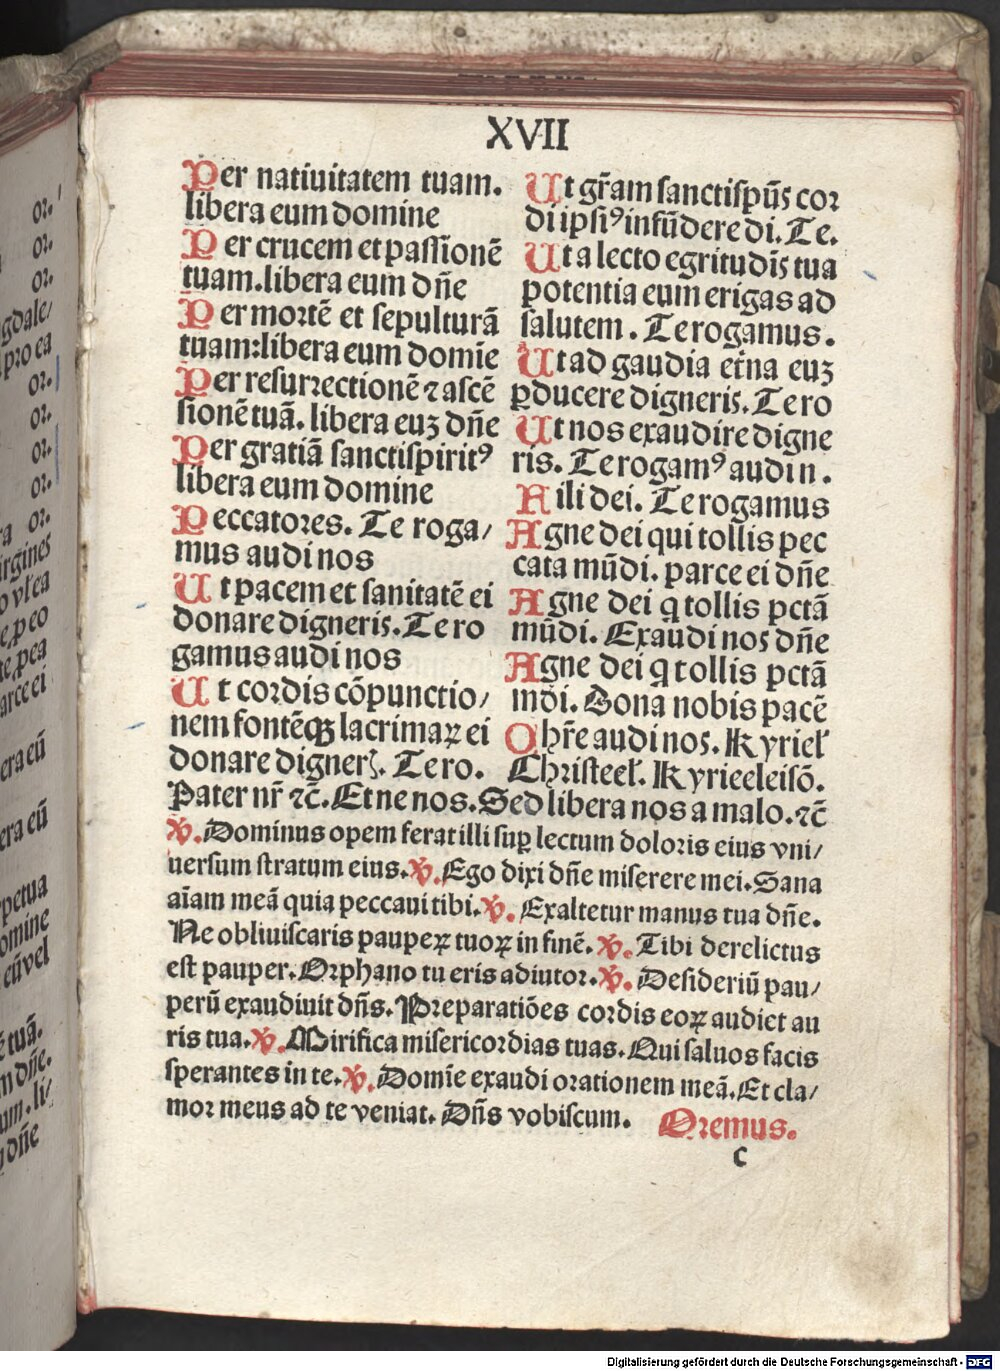 XVII
Per natiuitatem tuam.
libera eum domine
Per crucem et passionē
tuam. libera eum dn̄e
Per mortē et sepulturā
tuam: libera eum domīe
Per resurrectionē ⁊ ascē
sionē tuā. libera euꝫ dn̄e
Per gratiā sanctispiritꝰ
libera eum domine
Peccatores. Te roga/
mus audi nos
Ut pacem et sanitatē ei
donare digneris. Te ro
gamus audi nos
Ut cordis cōpunctio/
nem fontēqꝫ lacrimaꝝ ei
donare dignerꝭ. Te ro.
Ut gr̄am sanctispūs cor
di ipsiꝰ infūdere di. Te.
Ut a lecto egritudīs tua
potentia eum erigas ad
salutem. Te rogamus.
Ut ad gaudia et̄na euꝫ
ꝑducere digneris. Te ro
Ut nos exaudire digne
ris. Te rogamꝰ audi n.
Fili dei. Te rogamus
Agne dei qui tollis pec
cata mūdi. parce ei dn̄e
Agne dei q̄ tollis pctā
mūdi. Exaudi nos dn̄e
Agne dei q̄ tollis pctā
mōi. Dona nobis pacē
Chr̄e audi nos. Kyriel̄
Christeel̄. Kyrieeleisō.
Pater nr̄ ⁊c̄. Et ne nos. Sed libera nos a malo. ⁊c̄
℣. Dominus opem ferat illi suꝑ lectum doloris eius vni/
uersum stratum eius. ℣. Ego dixi dn̄e miserere mei. Sana
aīam meā quia peccaui tibi. ℣. Exaltetur manus tua dn̄e.
Ne obliuiscaris pauperꝝ tuoꝝ in finē. ℣. Tibi derelictus
est pauper. Orphano tu eris adiutor. ℣. Desideriū pau/
perū exaudiuit dn̄s. Preparatiōes cordis eoꝝ audiet au
ris tua. ℣. Mirifica misericordias tuas. Qui saluos facis
sperantes in te. ℣. Domīe exaudi orationem meā. Et cla/
mor meus ad te veniat. Dn̄s vobiscum. Oremus.
c
Digitalisierung gefördert durch die Deutsche Forschungsgemeinschaft - DFG